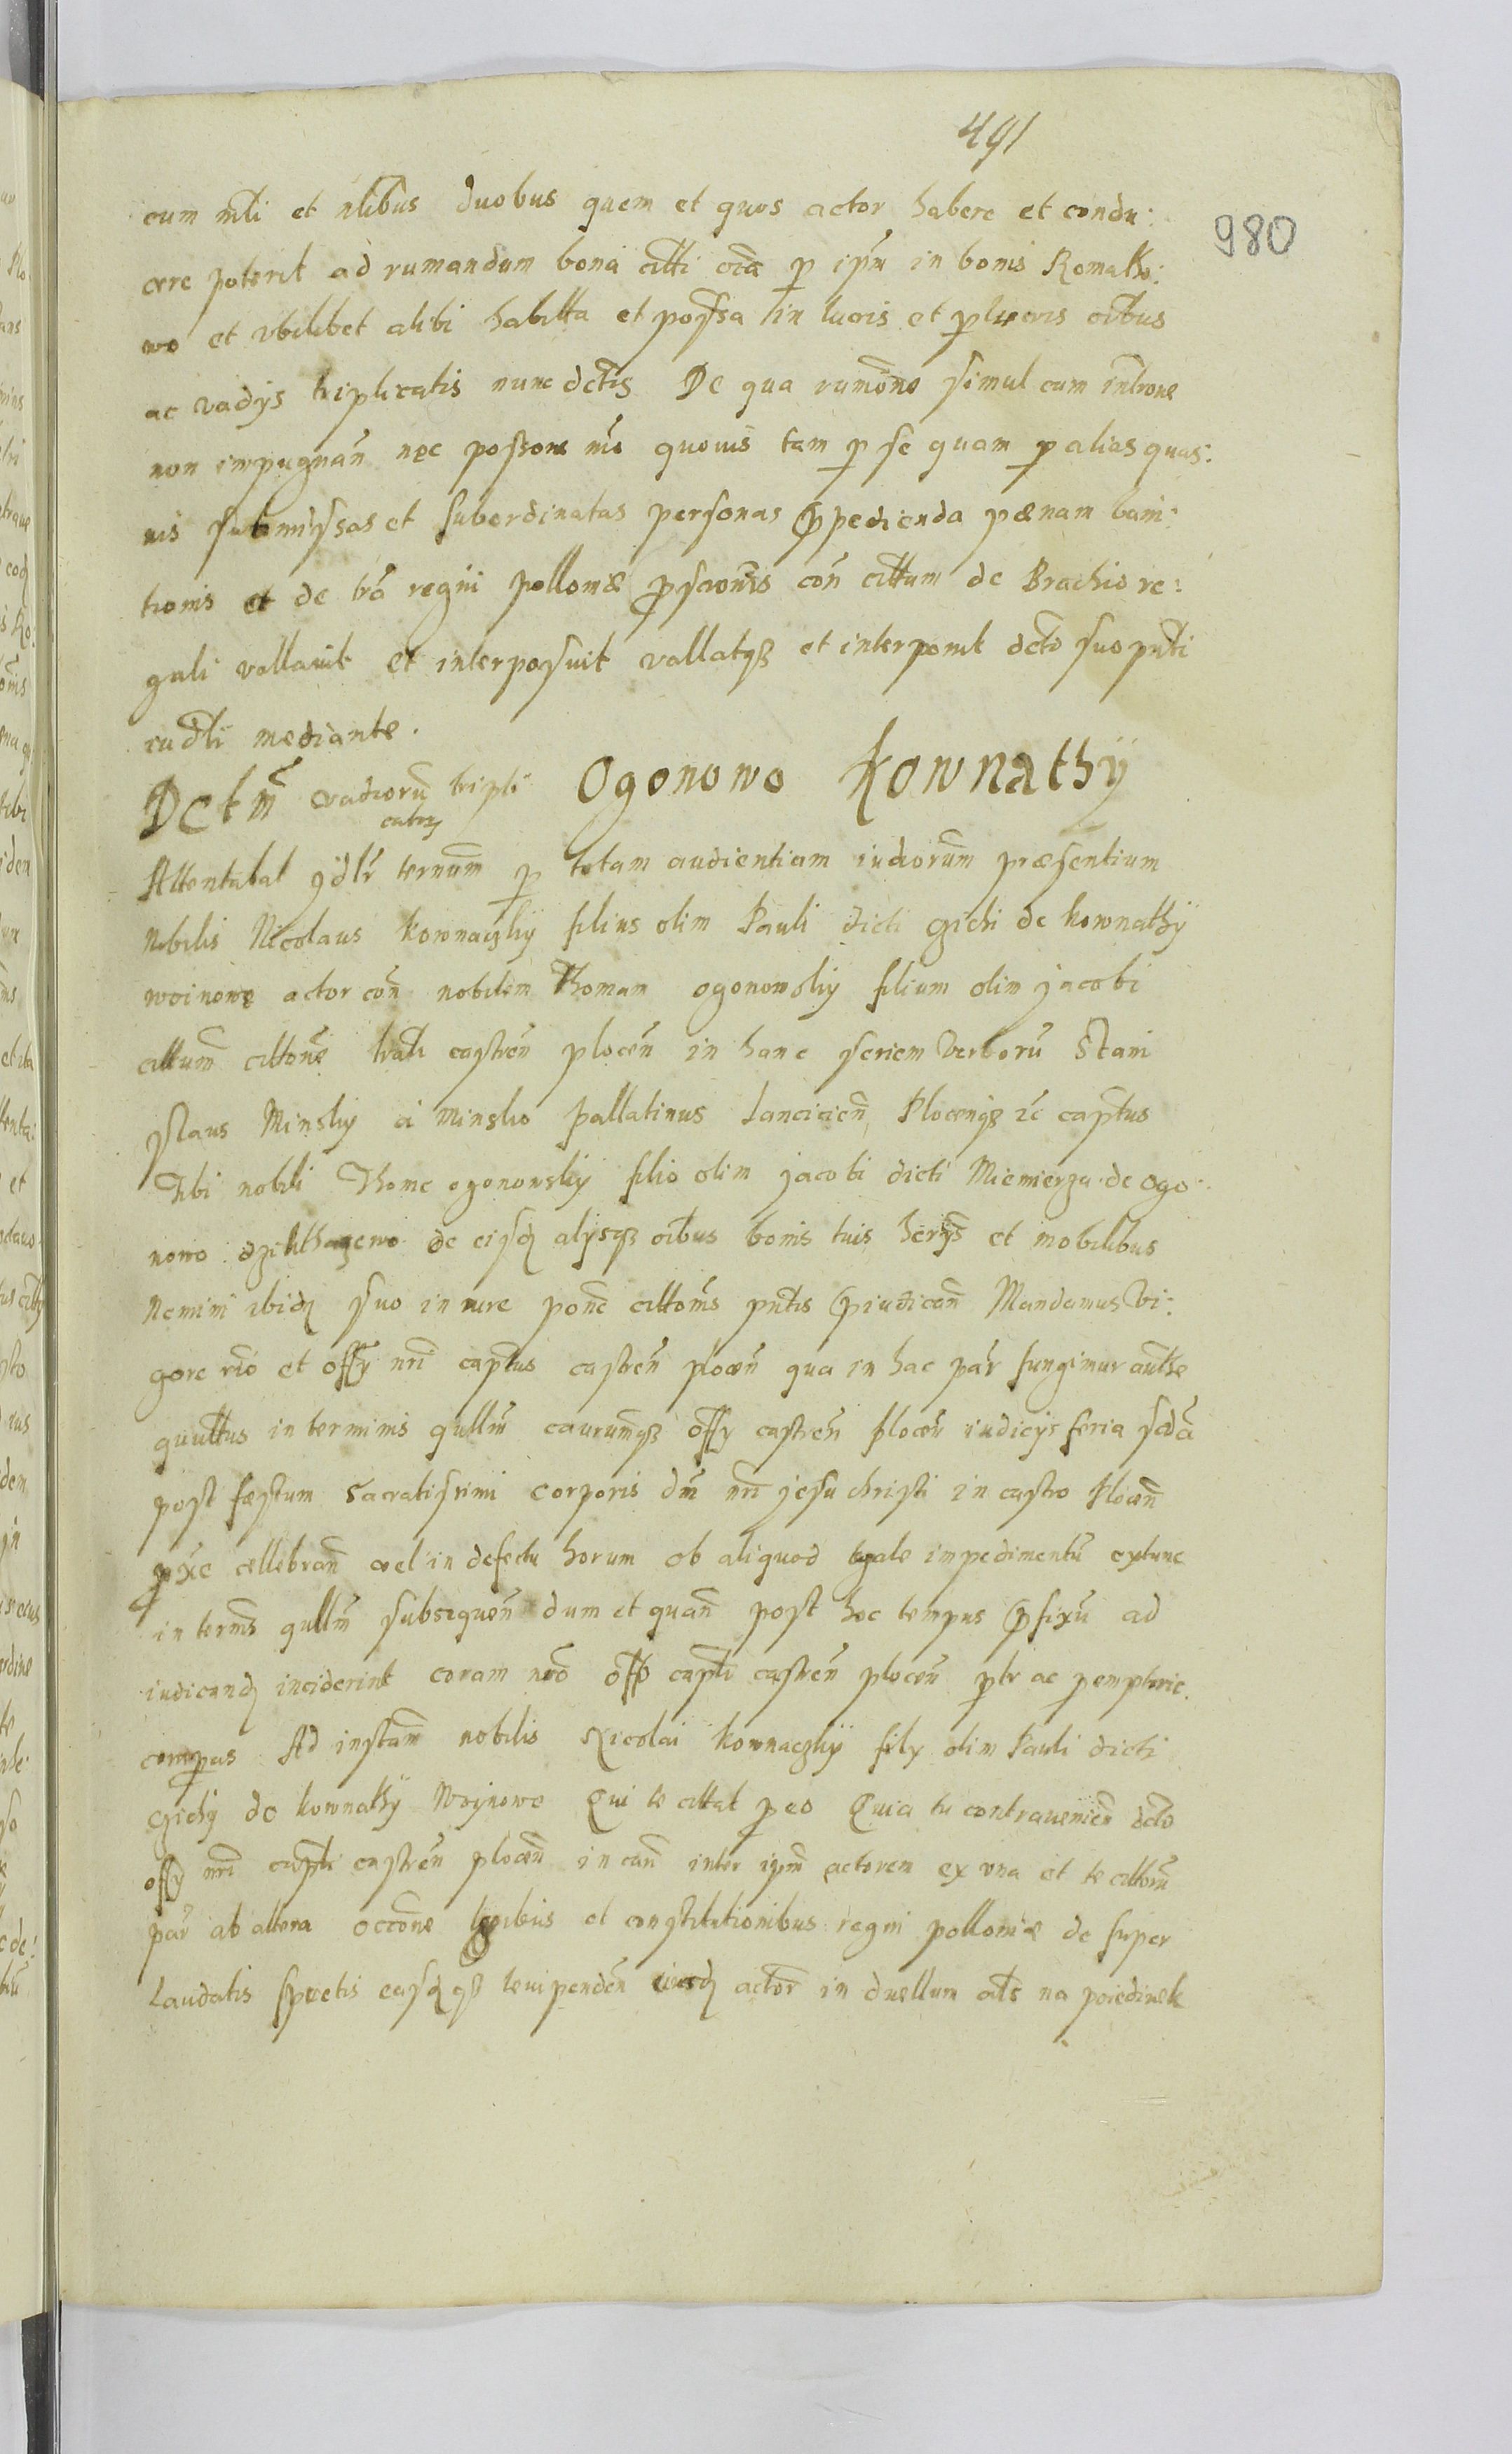 491
980
cum mlti et nlibus duobus quem et quos actor habere et condu:
cere poterit ad rumandum bona citti oia p ipm in bonis Romatho:
wo et vbilibet alibi habitta et possa in lucris et plucris oibus
ac vadys triplicatis nunc dctis De qua rumone simul cum introne
non impugnan nec possone mo quouis tam p se quam p alias quas:
uis submissas et subordinatas personas ppedienda pænam bani:
tionis et de tra regni polloniæ pscionis con cittum de Brachio re:
gali vallauit et interposuit vallatqz et interponit dcto suo pnti
iudtli mediante.
Dctm vadiorum tripli Ogonowo Kownathÿ
catorz
Attentabat gdlr ternum p totam audientiam iudiorum præsentium
Nobilis Nicolaus Kownaczkÿ filius olim Pauli dicti gichi de Kownathÿ
woinowe actor con nobilem Thomam ogonowskÿ filium olim jacobi
cittum cittone trali castren plocen in hanc seriem Verboru Stani
slaus Minskÿ a minsko pallatinus Lancicien, Plocenqz zc captus
Tibi nobili Thome ogonowskÿ filio olim jacobi dicti Miemierza de Ogo
nowo de eisd alysqz oibus bonis tuis herys et mobilibus
Nemini ibid suo in iure pone cittonis pntis piudican Mandamus Vi:
gore rio et offy nri captus castren plocen qua in hac par fungimur authe
quattus in terminis qullm caurumqz offy castren plocen iudicijs feria scda
post fæstum Sacratissimi corporis dni nri jesu christi in castro Plocen
pxe cællebran vel in defectu horum ob aliquod legale impedimentu extunc
in termis qullm subsequen dum et quan post hoc tempus pfixu ad
iudicand inciderint coram nro offo capli castren plocen ptr ac pemptorie
compas Ad instam nobilis Nicolai kownaczkÿ fily olim Pauli dicti
gichÿ de kownathÿ Woÿnowe Qui te cittat p eo Quia tu contrauenien dcto
offy nri capli castren plocen in can inter ipm actorem ex vna et te cittum
par ab altera occone legibus et constitutionibus regni polloniæ de super
Laudatis spretis easqz leuipenden eiusd actor in duellum als na poiedinek